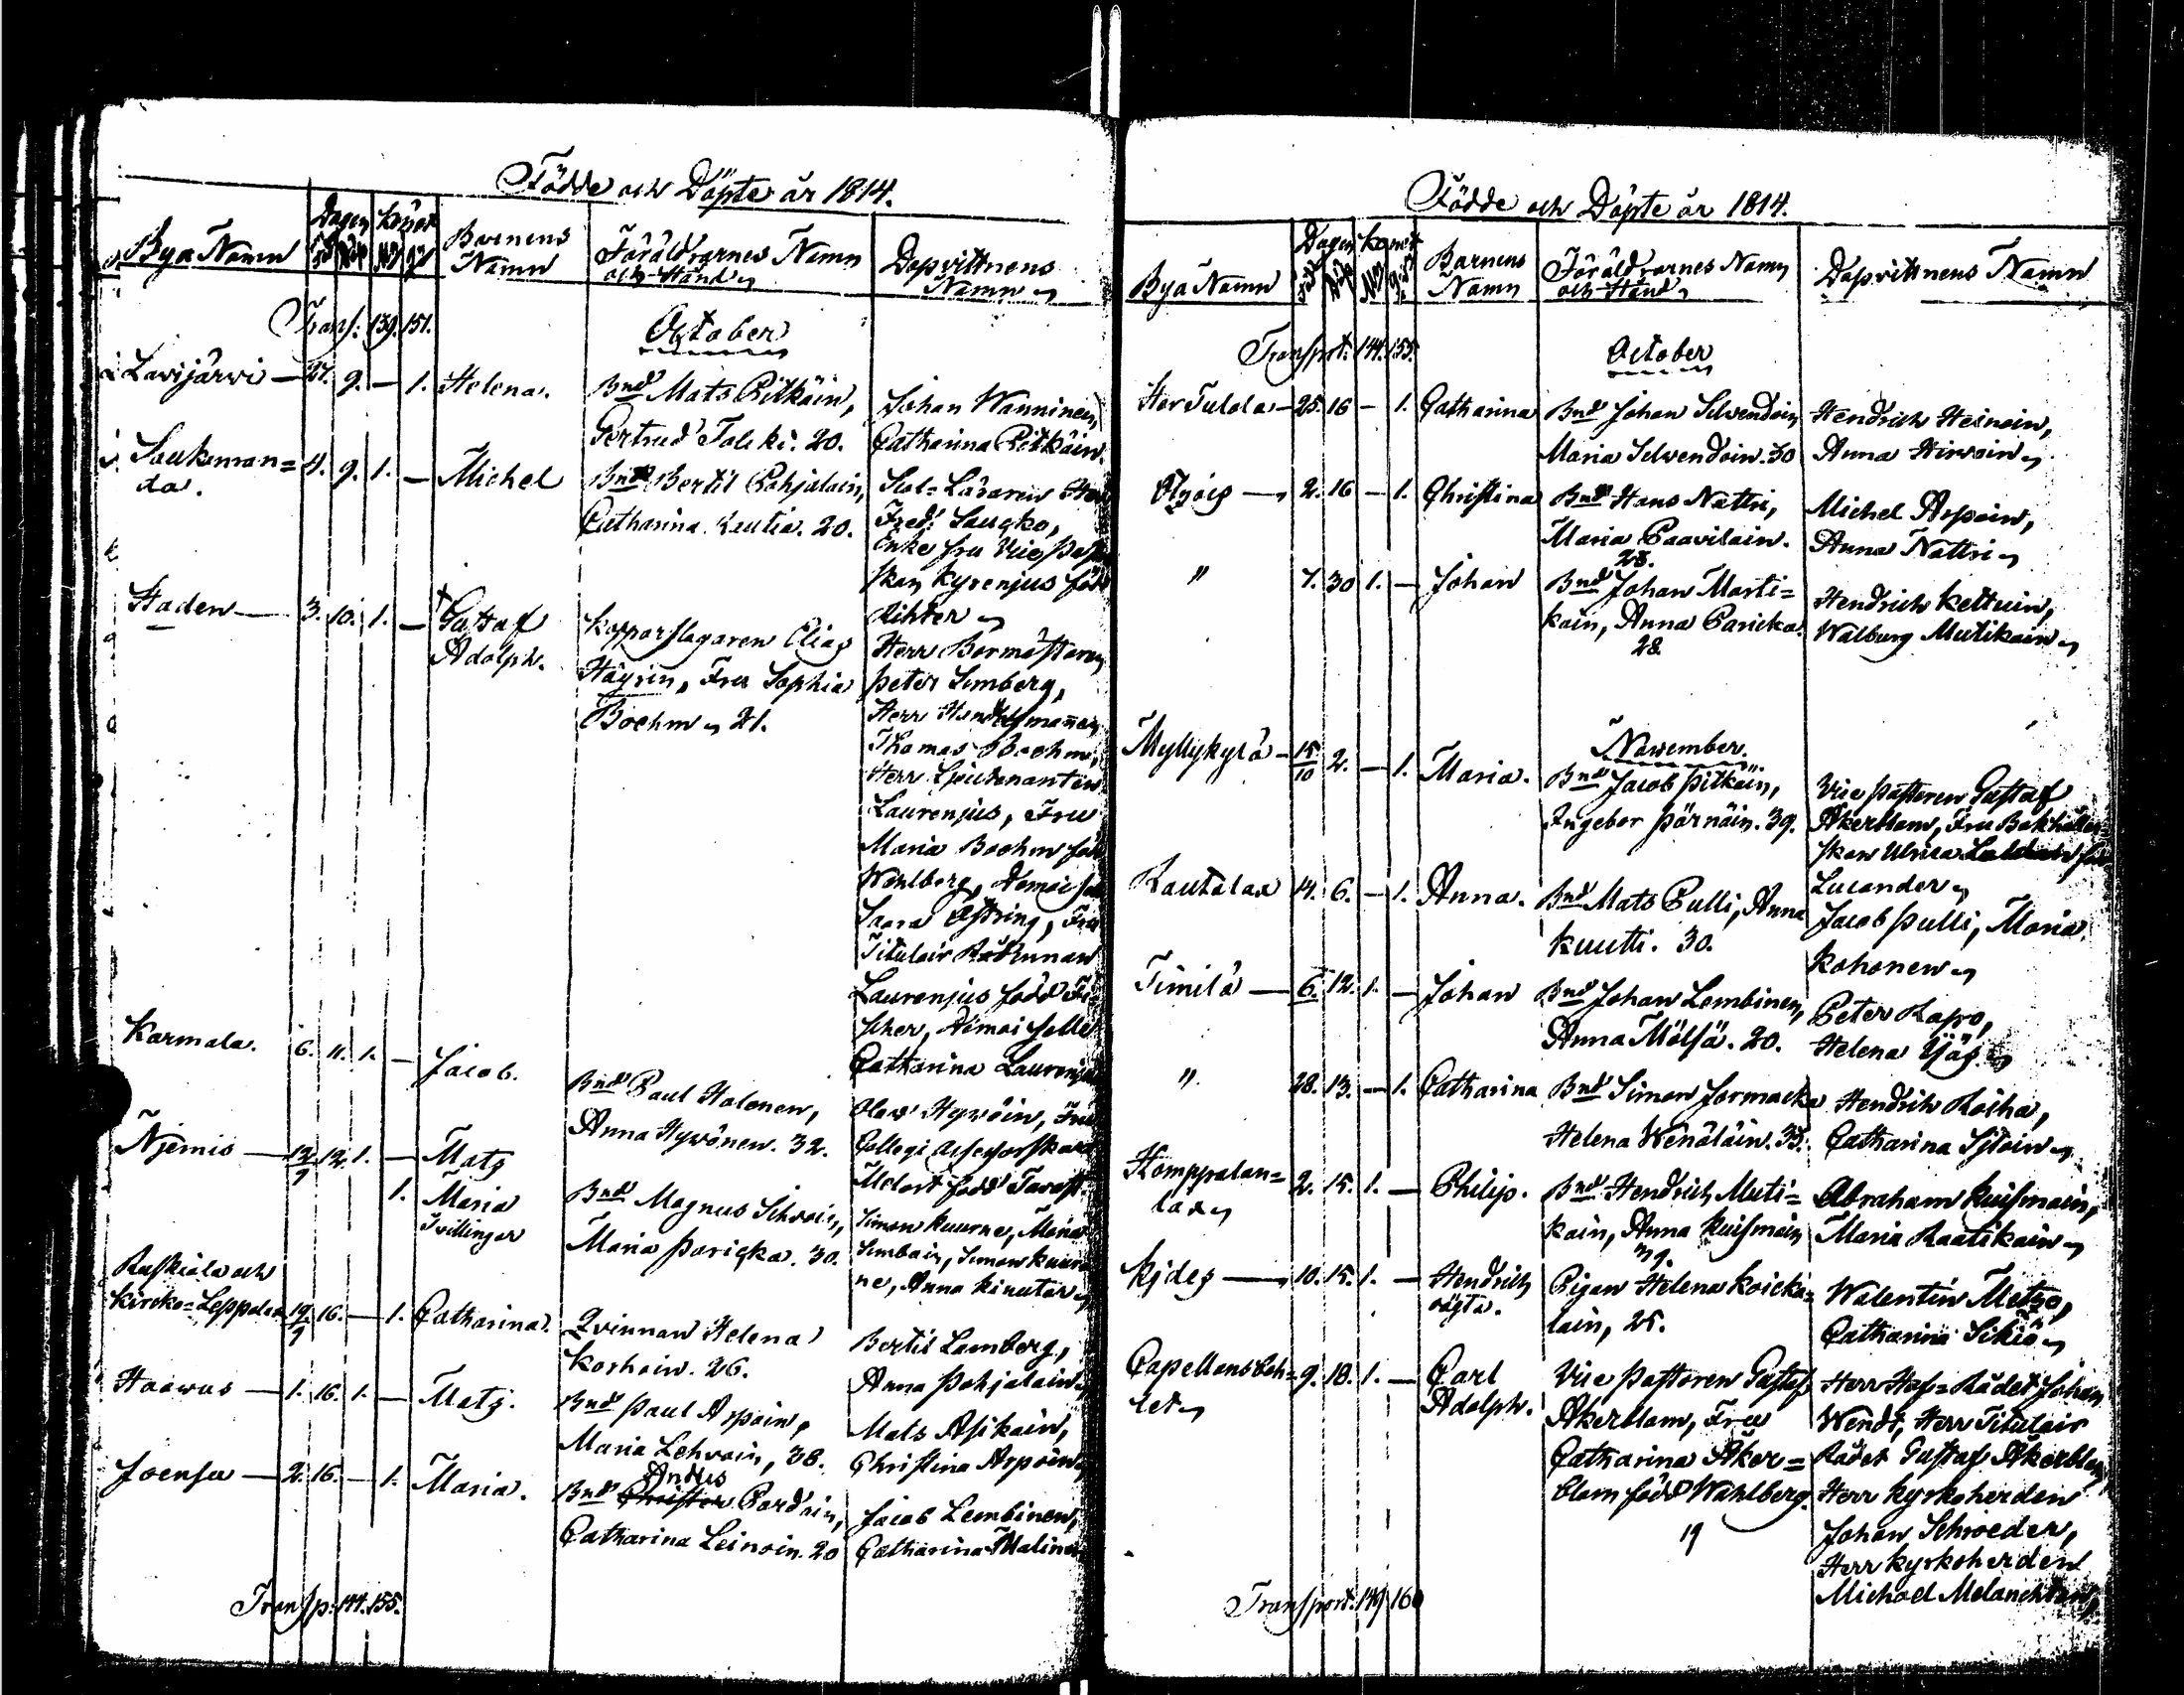 Födde och Döpte år 1814.
Bya Namn
Dagen
Könet
Barnens
Namn
Föräldrarnes Namn
och Stånd
Dopvittnens
Namn
Transp: 139. 151.
October
Lavijärvi — 27. 9. — 1. Helena.
Bnd Mats Pitkäin,
Gertrud Tolcki. 20.
Johan Wanninen,
Catharina Pitkäin.
Soukanran=
da. 4. 9. 1. — Michel
Bnd Bertil Pohjalain,
Catharina Kiutia. 20.
Skol=Läraren Herr
Fred: Saugko,
Enke fru Vice Past
skan Kyrenius föd
Richter
Staden — 3. 10. 1. — Gustaf
Adolph.
Kopparslagaren Elias
Häyrin, Fru Sophia
Boehm 21.
Herr Bormästaren
Peter Simberg,
Herr Handelsmannen
Thomas Boehm,
Herr Lieutenanten
Laurenjus, Fru
Maria Boehm föd
Wahlberg, Demoiselle
Saara Östring, Fru
Titulair Rådinnan
Laurenjus född Fi=
scher, Demoiselle
Catharina Laurenjus
Karmala. 6. 11. 1. — Jacob.
Bnd Paul Holonen,
Anna Hyvönen. 32.
Olof Hyvöin, Fru
Collegi Assessorskan
Melart född Tavast
Njemis — 12/9 12. 1. — Mats
1. Maria
Tvillingar
Bnd Magnus Sihvoin,
Maria Paricka. 30.
Simon Kuurne, Maria
Simbain, Simon Kuur
ne, Anna Kinutar
Ruskiala och
Kirko=Leppälax 19/9 16. — 1. Catharina.
Qvinnan Helena
Korhoin. 26.
Bertil Lamberg,
Anna Pohjalain
Haavus — 1. 16. 1. — Mats.
Bnd Paul Arpoin,
Maria Lehvoin, 38.
Mats Asikain,
Christina Arpoin
Joensu — 2. 16. — 1. Maria.
Anders
Bnd Christer Pardain,
Catharina Leinoin. 20
Jacob Lembinen,
Catharina Malinen
Transp: 144. 155.
Födde och Döpte år 1814.
Bya Namn
Dagen
Könet
Barnens
Namn
Föräldrarnes Namn
och Stånd
Dopvittnens Namn
Transport: 144. 155.
October
Stor Tulola — 25. 16 — 1. Catharina
Bnd Johan Silvendoin
Maria Silvendoin. 30
Hendrich Heinoin,
Anna Hirvoin
Otjois — 2. 16 — 1. Christina
Bnd Hans Nättri,
Maria Paavilain.
28.
Michel Arpoin,
Anna Nättri
" 7. 30 1. — Johan
Bnd Johan Marti=
kain, Anna Paricka.
28.
Hendrich Kettuin,
Walburg Mutikain
November.
Myllykylä — 15/10 2. — 1. Maria.
Bnd Jacob Pitkäin,
Ingebor Pärnäin. 39.
Vice Pastoren Gustaf
Åkerblom, Fru Bokhållar=
skan Ulrica
Lucander
Rautalax 14. 6. — 1. Anna.
Bnd Mats Pulli, Anna
Kuutti. 30.
Jacob Pulli, Maria
Kohonen
Timilä — 6. 12. 1. — Johan
Bnd Johan Lembinen,
Anna Mölsä. 20.
Peter Rapo,
Helena
" 28. 13. — 1. Catharina
Bnd Simon Jormacka
Helena Wenäläin. 33.
Hendrich Roiha,
Catharina Sjtoin
Komppalan=
lax 2. 15. 1. — Philip.
Bnd Hendrich Muti=
kain, Anna Kuismain
39.
Abraham Kuismain,
Maria Raatikain
Kides — 10. 15. 1. — Hendrich
oägta.
Pigan Helena Koicka=
lain, 25.
Walentin Metzo,
Catharina Sikiö
Capellans Boh=
let 9. 18. 1. — Carl
Adolph.
Vice Pastoren Gustaf
Åkerblom, Fru
Catharina Åker=
blom född Wahlberg.
19
Herr Hof=Rådet Johan
Wendt, Herr Titulair
Rådet Gustaf Åkerblom,
Herr Kyrkoherden
Johan Schroeder,
Herr Kyrkoherden
Michael Melanchton,
Transport: 149 160